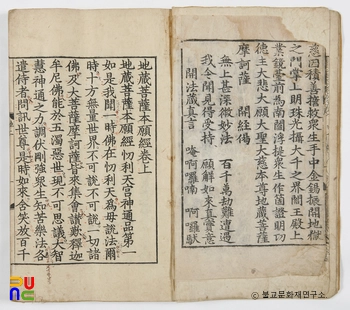 慈因積善誓救衆生手中金錫振開地獄
之門掌上明珠光攝大千之界閻王殿上
業鏡臺前爲南閻浮提衆生作箇證明功
德主大悲大願大聖大慈本尊地藏菩薩
摩訶薩 開經偈
無上甚深微妙法 百千萬劫難遭遇
我今聞見得受持 願解如來真實意
開法藏真言 唵啊囉喃 啊囉馱
地藏菩薩本願經卷上
地藏菩薩本願經忉利天宮神通品第一
如是我聞一時佛在忉利天爲母說法爾
時十方無量世界不可說不可說一切諸
佛及大菩薩摩訶薩皆來集會讚歎釋迦
牟尼佛能於五濁惡世現不可思議大智
慧神通之力調伏剛强衆生知苦樂法各
遣侍者問訊世尊是時如來含笑放百千
ⓒ 불교문화재연구소